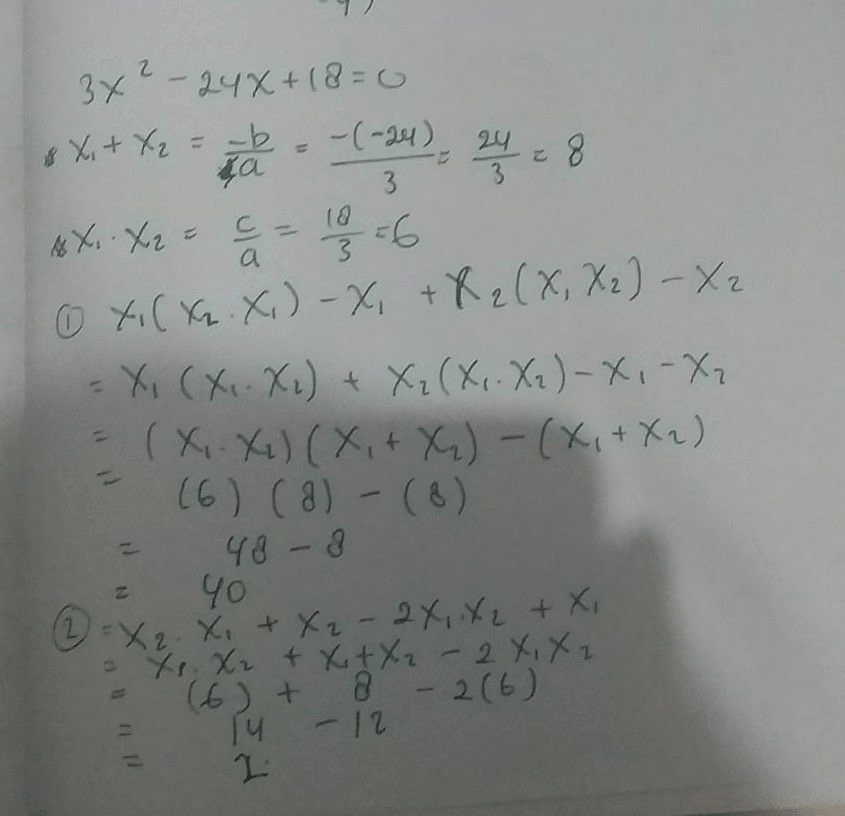 3x² - 24x + 18 = 0
x₁ + x₂ = -b/a = -(-24)/3 = 24/3 = 8
x₁ . x₂ = c/a = 18/3 = 6
① x₁(x₂ . x₁) - x₁ + x₂(x₁ x₂) - x₂
= x₁ (x₁ . x₂) + x₂(x₁ . x₂) - x₁ - x₂
= (x₁ . x₂)(x₁ + x₂) - (x₁ + x₂)
= (6) (8) - (8)
= 48 - 8
= 40
② = x₂ . x₁ + x₂ - 2x₁ . x₂ + x₁
= x₁ . x₂ + x₁ + x₂ - 2 x₁ x₂
= (6) + 8 - 2(6)
= 14 - 12
= 2